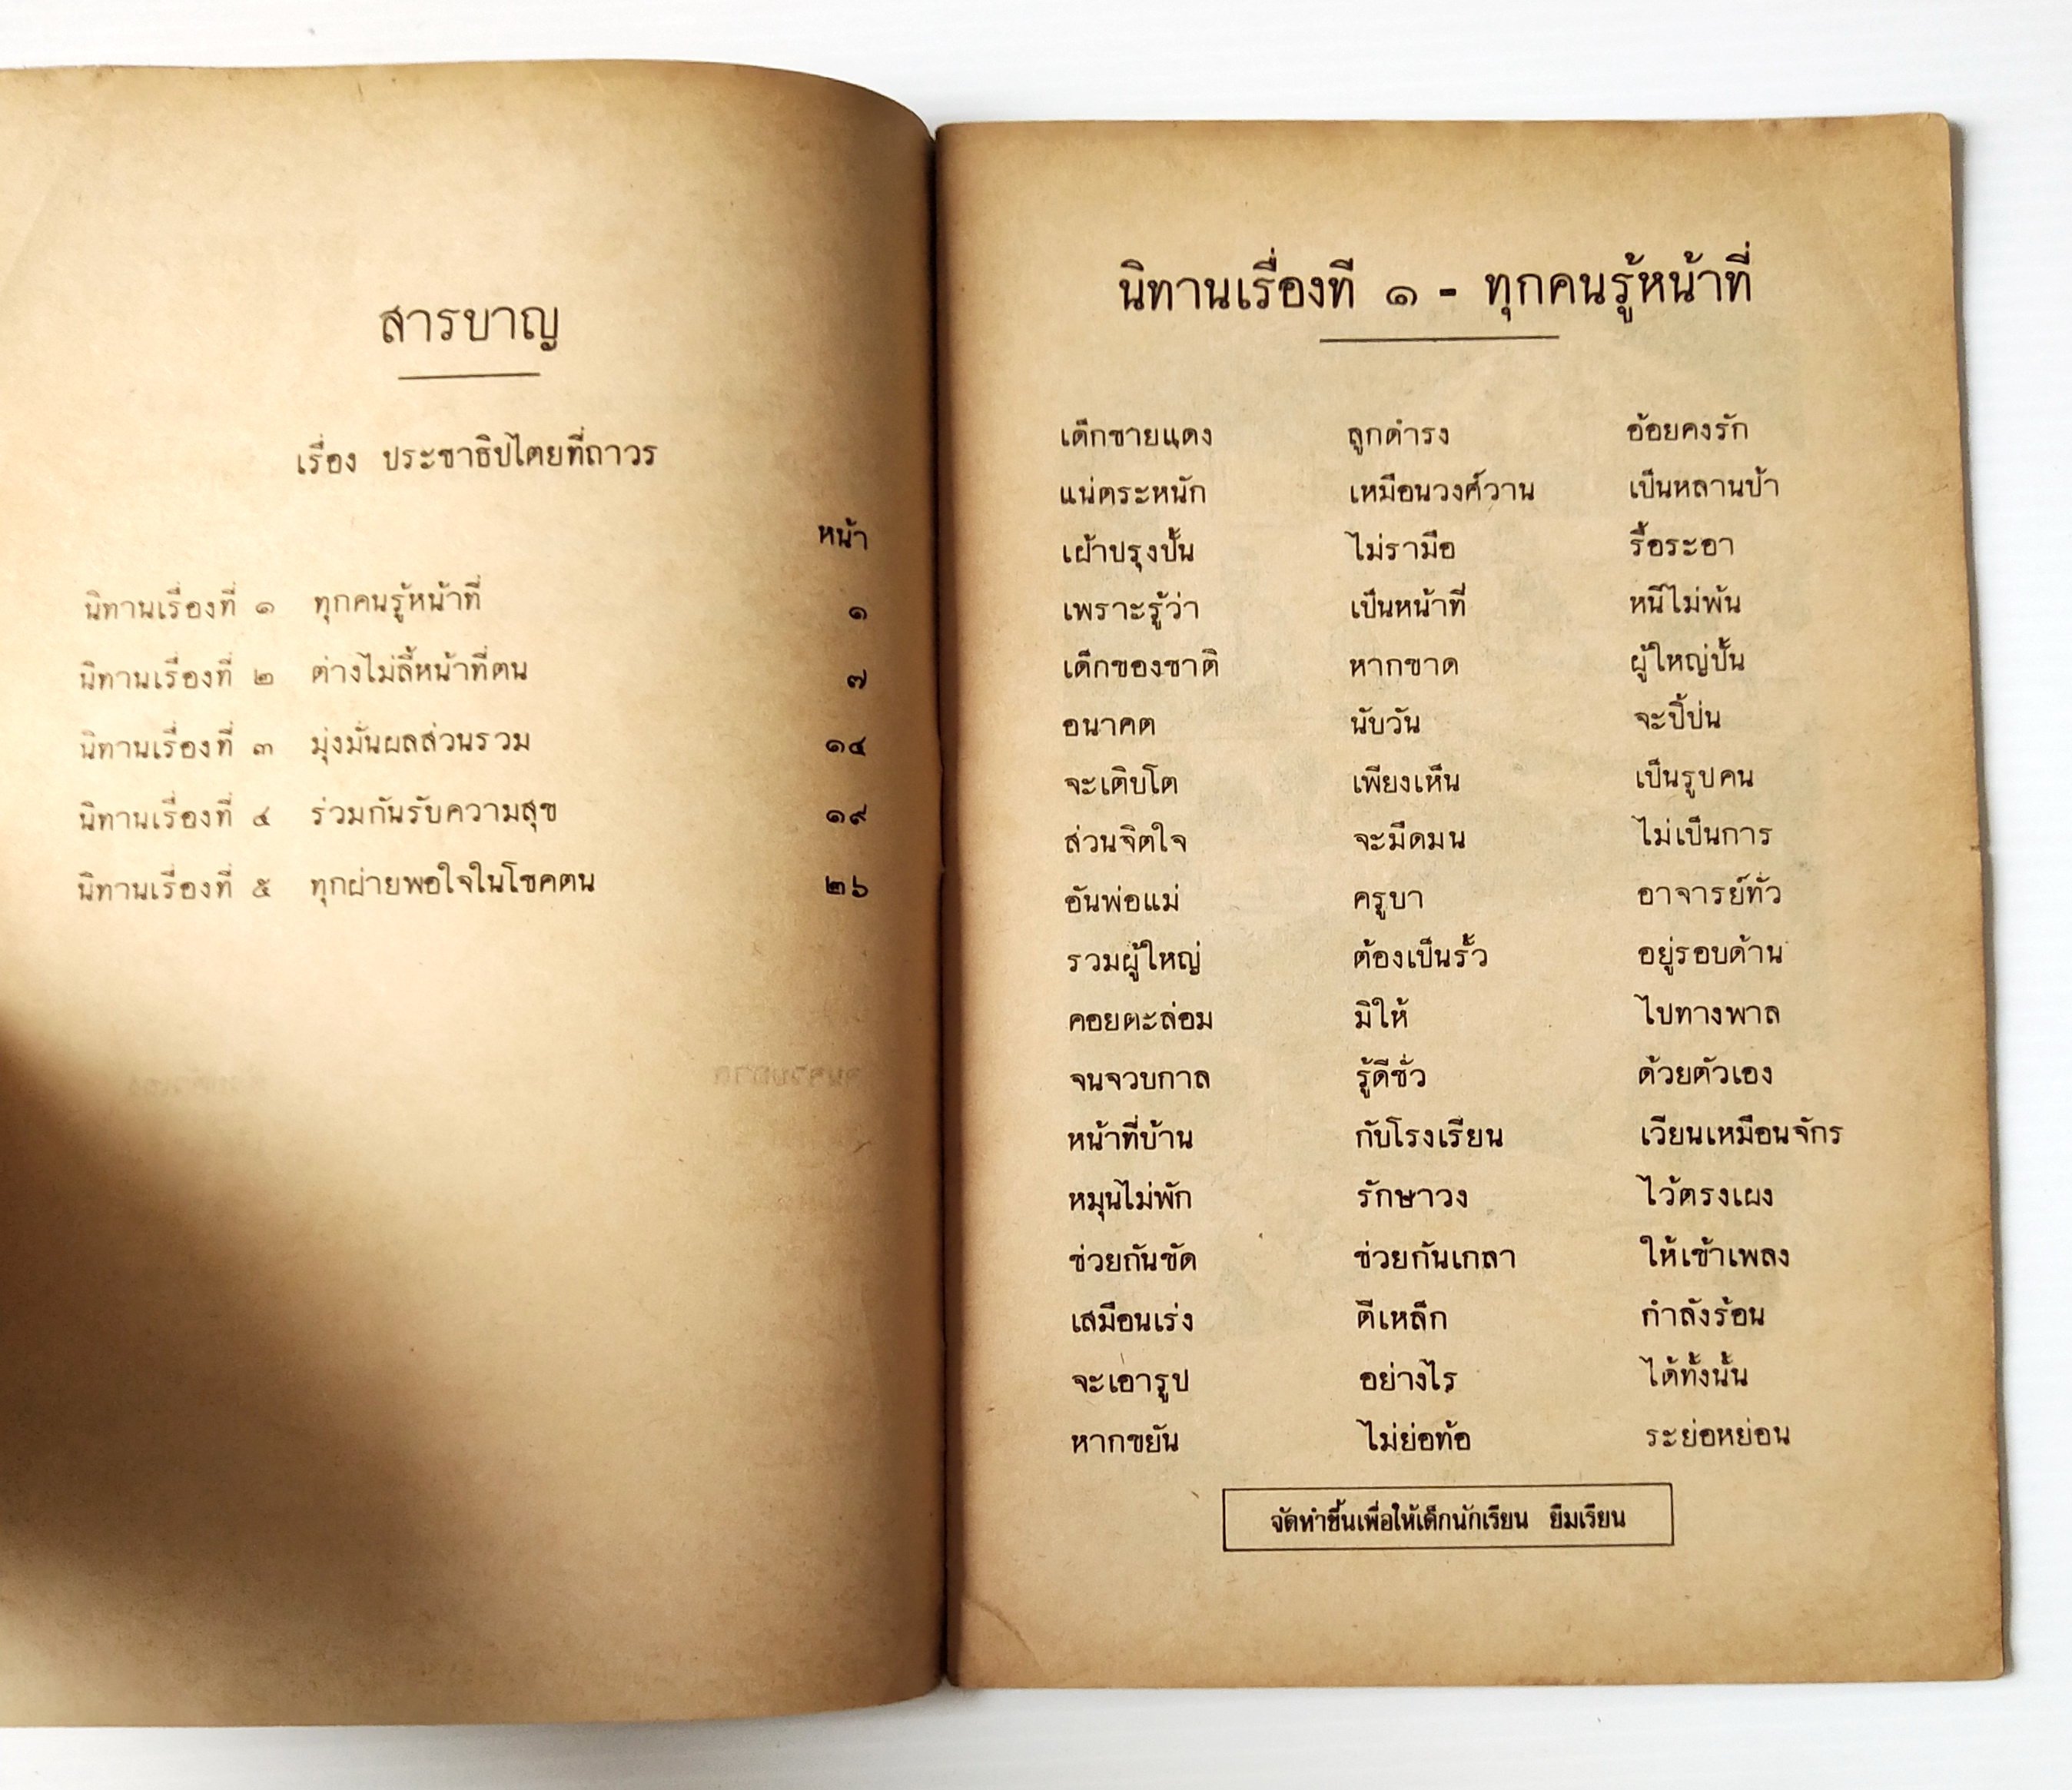 สารบาญ
เรื่อง ประชาธิปไตยที่ถาวร
หน้า
นิทานเรื่องที่ ๑ ทุกคนรู้หน้าที่ ๑
นิทานเรื่องที่ ๒ ต่างไม่ลี้หน้าที่ตน ๗
นิทานเรื่องที่ ๓ มุ่งมั่นผลส่วนรวม ๑๔
นิทานเรื่องที่ ๔ ร่วมกันรับความสุข ๑๙
นิทานเรื่องที่ ๕ ทุกฝ่ายพอใจในโชคตน ๒๖
นิทานเรื่องที่ ๑ - ทุกคนรู้หน้าที่
เด็กชายแดง ลูกดำรง อ้อยคงรัก
แน่ตระหนัก เหมือนวงศ์วาน เป็นหลานป้า
เฝ้าปรุงปั้น ไม่รามือ รื้อระอา
เพราะรู้ว่า เป็นหน้าที่ หนีไม่พ้น
เด็กของชาติ หากขาด ผู้ใหญ่ปั้น
อนาคต นับวัน จะปี้ป่น
จะเติบโต เพียงเห็น เป็นรูปคน
ส่วนจิตใจ จะมืดมน ไม่เป็นการ
อันพ่อแม่ ครูบา อาจารย์ทั่ว
รวมผู้ใหญ่ ต้องเป็นรั้ว อยู่รอบด้าน
คอยตะล่อม มิให้ ไปทางพาล
จนจวบกาล รู้ดีชั่ว ด้วยตัวเอง
หน้าที่บ้าน กับโรงเรียน เวียนเหมือนจักร
หมุนไม่พัก รักษาวง ไว้ตรงเผง
ช่วยกันขัด ช่วยกันเกลา ให้เข้าเพลง
เสมือนเร่ง ตีเหล็ก กำลังร้อน
จะเอารูป อย่างไร ได้ทั้งนั้น
หากขยัน ไม่ย่อท้อ ระย่อหย่อน
จัดทำขึ้นเพื่อให้เด็กนักเรียน ยืมเรียน